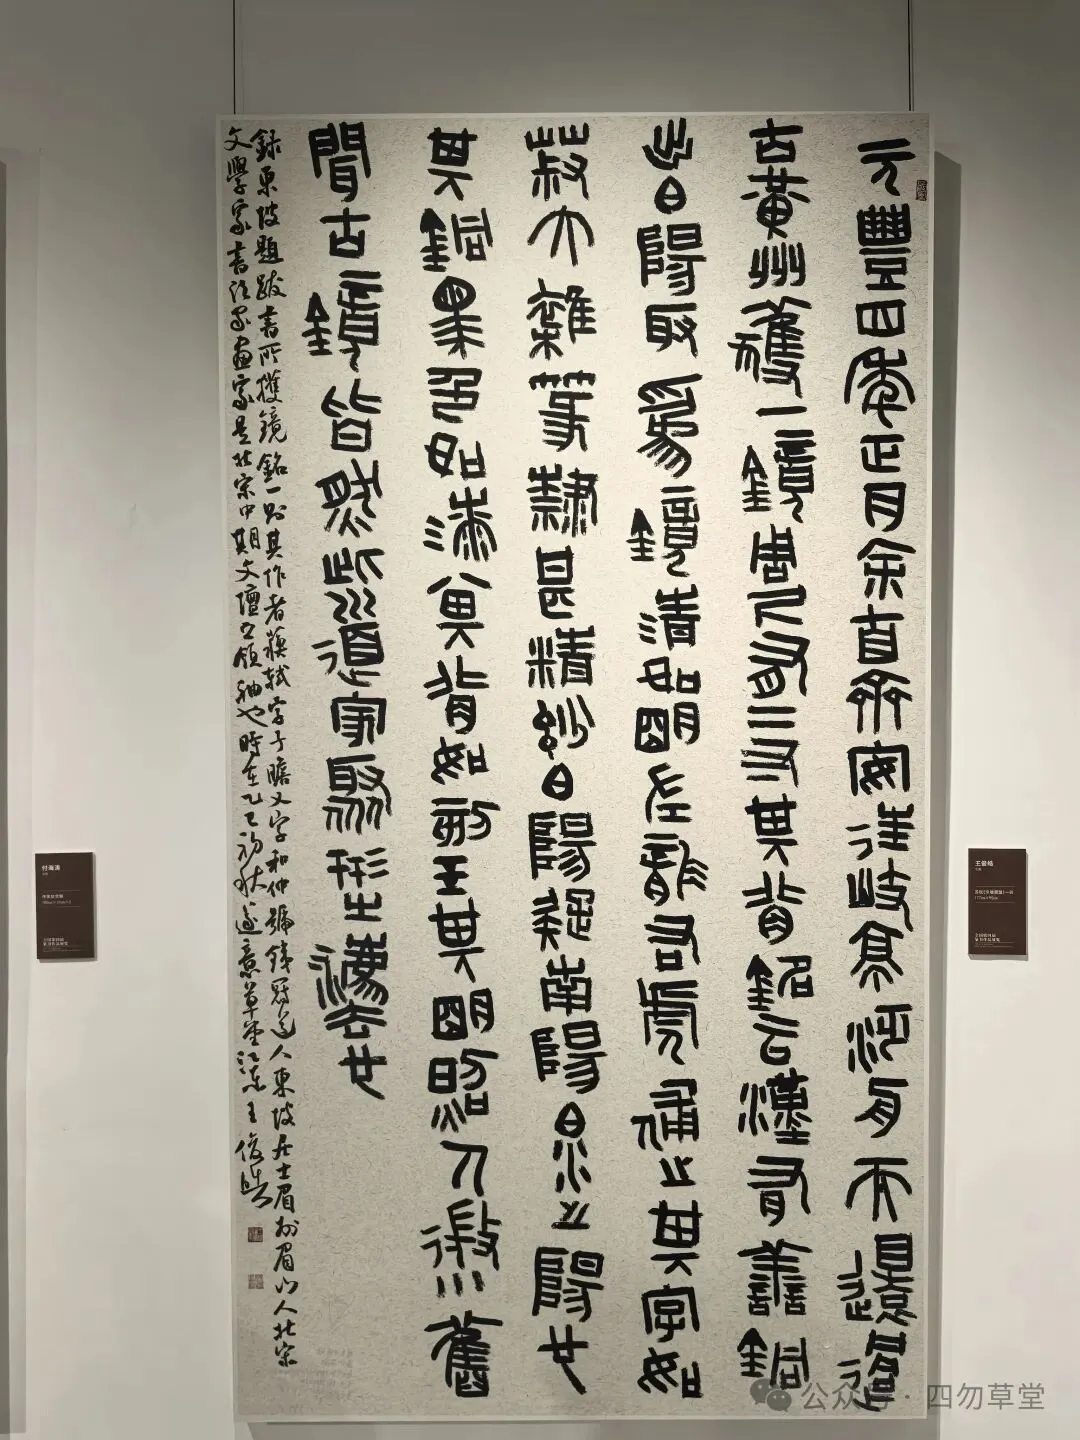 元豐四年正月余自齊安往岐亭泛舟而還過
古黃州獲一鏡周尺有二寸其背銘云漢有善銅
出白陽取為鏡清如明左龍右虎俌之其字如
菽大雜篆隸甚精妙白陽疑南陽白水之陽也
其銅黑色如漆其背如刻玉其明照人微小舊
聞古鏡皆然此道家聚形之灋也
錄東坡題跋書所獲鏡銘一則其作者蘇軾字子瞻又字和仲號鐵冠道人東坡居士眉州眉山人北宋
文學家書法家畫家是北宋中期文壇之領袖也時在乙巳初秋意草堂江蘇王俊皓
付海涛
王俊皓
公众号·四勿草堂